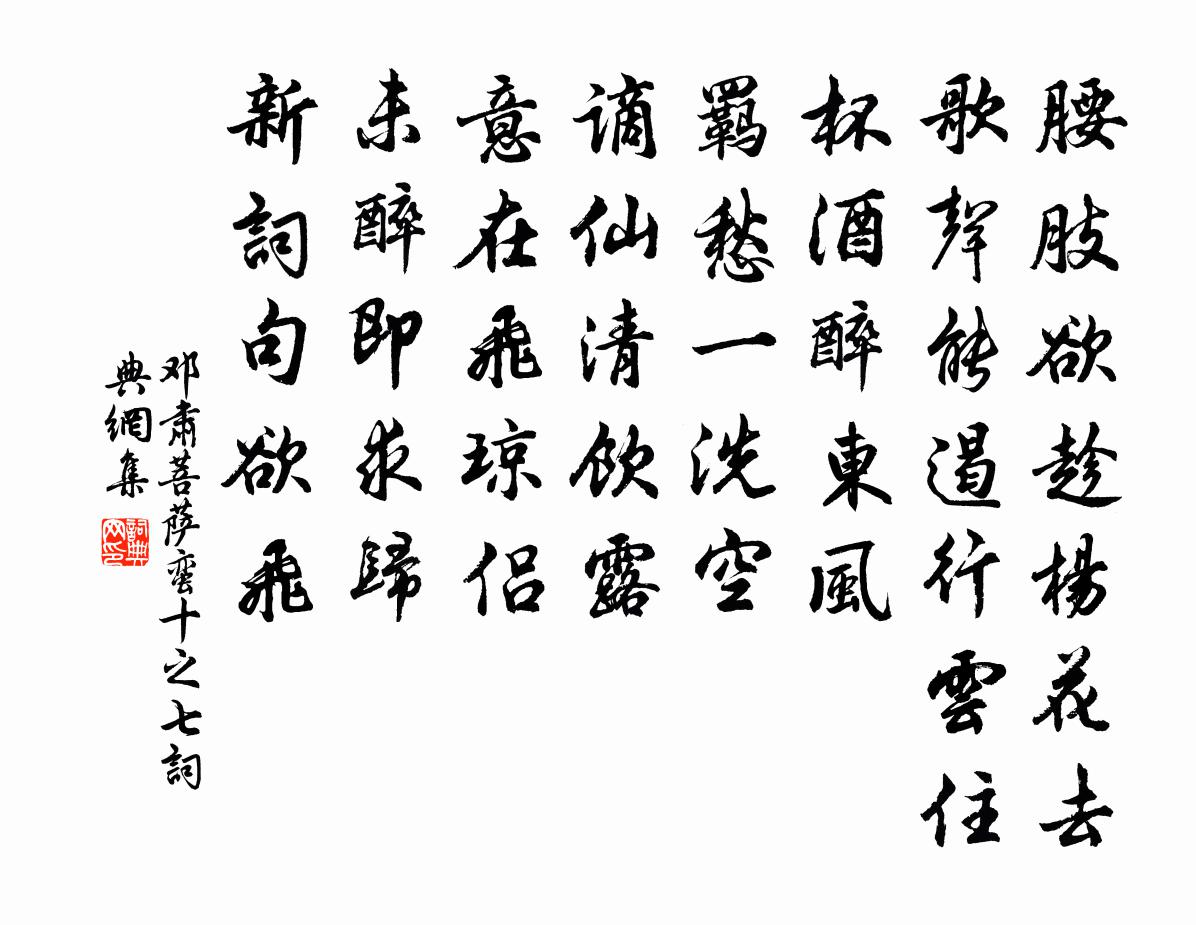 腰肢欲趁楊花去
歌聲能遏行雲住
杯酒醉東風
羈愁一洗空
謫仙清飲露
意在飛琼侶
未醉即求歸
新詞句欲飛
邓肃菩萨蛮十之七詞
典網集
詞典
网印